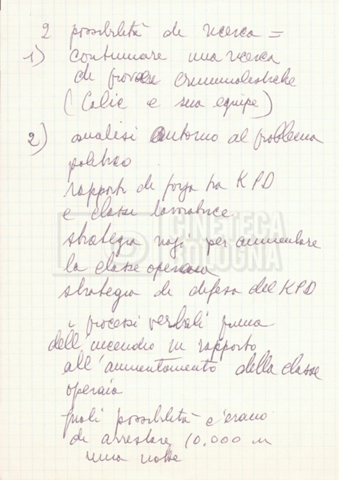 2 possibilità di ricerca =
1) continuare una ricerca
di prove criminalistiche
(Calic e sua equipe)
2) analisi intorno al problema
politico
rapporti di forza tra KPD
e classe lavoratrice
strategia nazi per annientare
la classe operaia
strategia di difesa del KPD
i processi verbali prima
dell'incendio in rapporto
all'annientamento della classe
operaia
quali possibilità c'erano
di arrestare 10.000 in
una notte
CINETECA
BOLOGNA